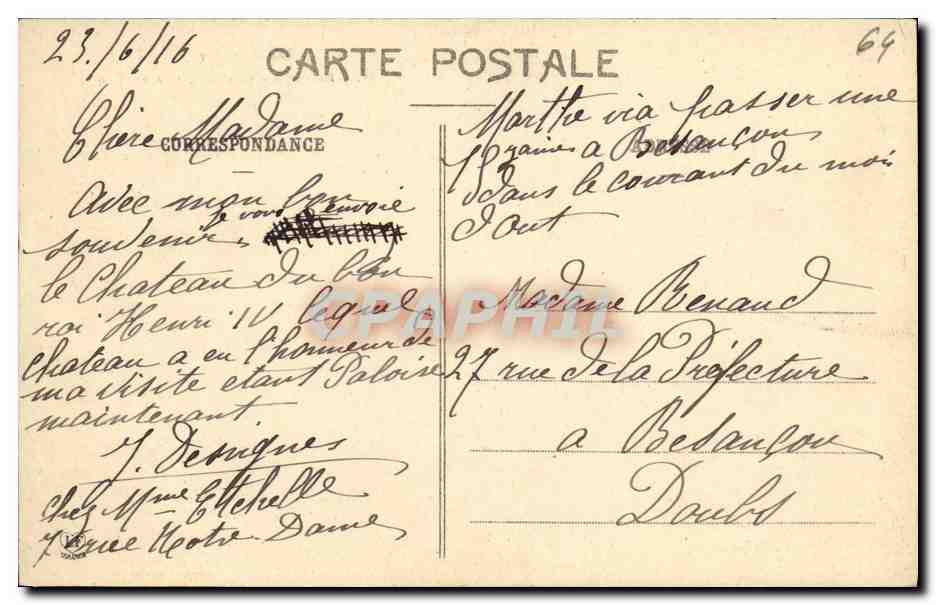 23/6/16
64
CARTE POSTALE
Chère Madame
CORRESPONDANCE
Avec mon bon
je vous envoie
souvenir
le Chateau du bon
roi Henri IV lequel
chateau a eu l'honneur de
ma visite etant Paloise
maintenant
J. Desvignes
chez Mme Etchelle
7 rue Notre Dame
Marthe via passer une
15zaine a Besançon
dans le courant du mois
d'out
Madame Renaud
27 rue de la Préfecture
a Besançon
Doubs
CPAPHIL